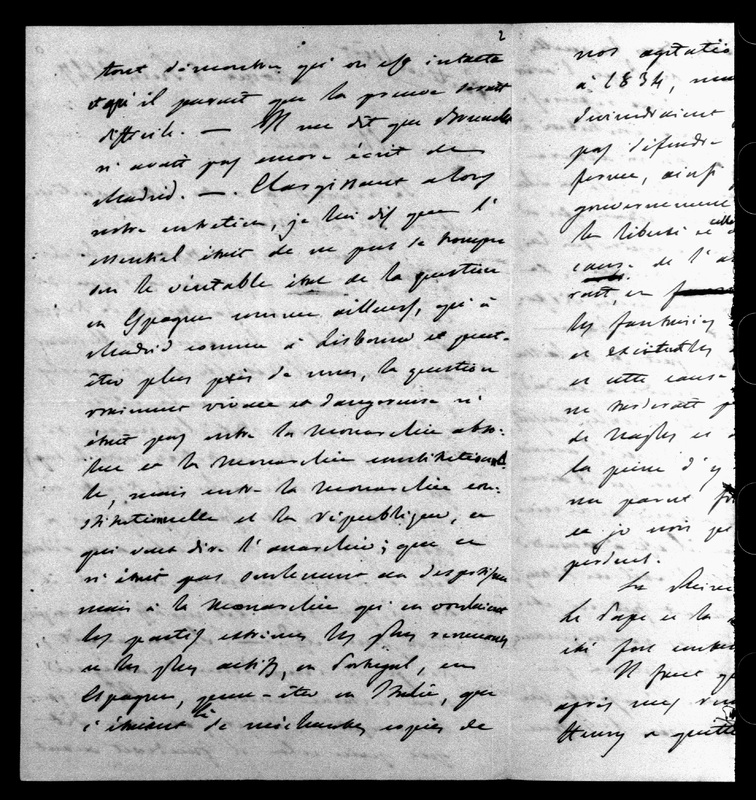 2
tout démontre qui on est intacte
et qu'il parait que la preuve serait
difficile. — Il me dit que
n'avait pas encore écrit de
Madrid. — Elargissant alors
notre entretien, je lui dis que l'
essentiel était de ne pas se tromper
sur le véritable état de la question
en Espagne comme ailleurs, qu'à
Madrid comme à Lisbonne et peut-
être plus près de nous, la question
vraiment vivace et dangereuse n'
était pas entre la monarchie abso-
lue et la monarchie constitutionnel
le, mais entre la monarchie con-
stitutionnelle et la république, ce
qui veut dire l'anarchie; que ce
n'était pas seulement au despotisme
mais à la monarchie qu'en voulaient
les partis extrêmes les plus remuans
et les plus actifs, en Portugal, en
Espagne, peut-être en Italie, que
c'étaient là de méchantes copies de
nos agitatio
à 1834,
deviendraient
pas défendre
Perme, ainsi
gouvernement
la liberté et cette
cause de l'a
rait, en
les fantaisies
et excitables
et cette cause
ne tarderait p
de Naples et
la peine d'y
me parut
et je vois
perdent.
La Reine
le Pape et la
été fort
Il faut
après mes
Henry a quitté